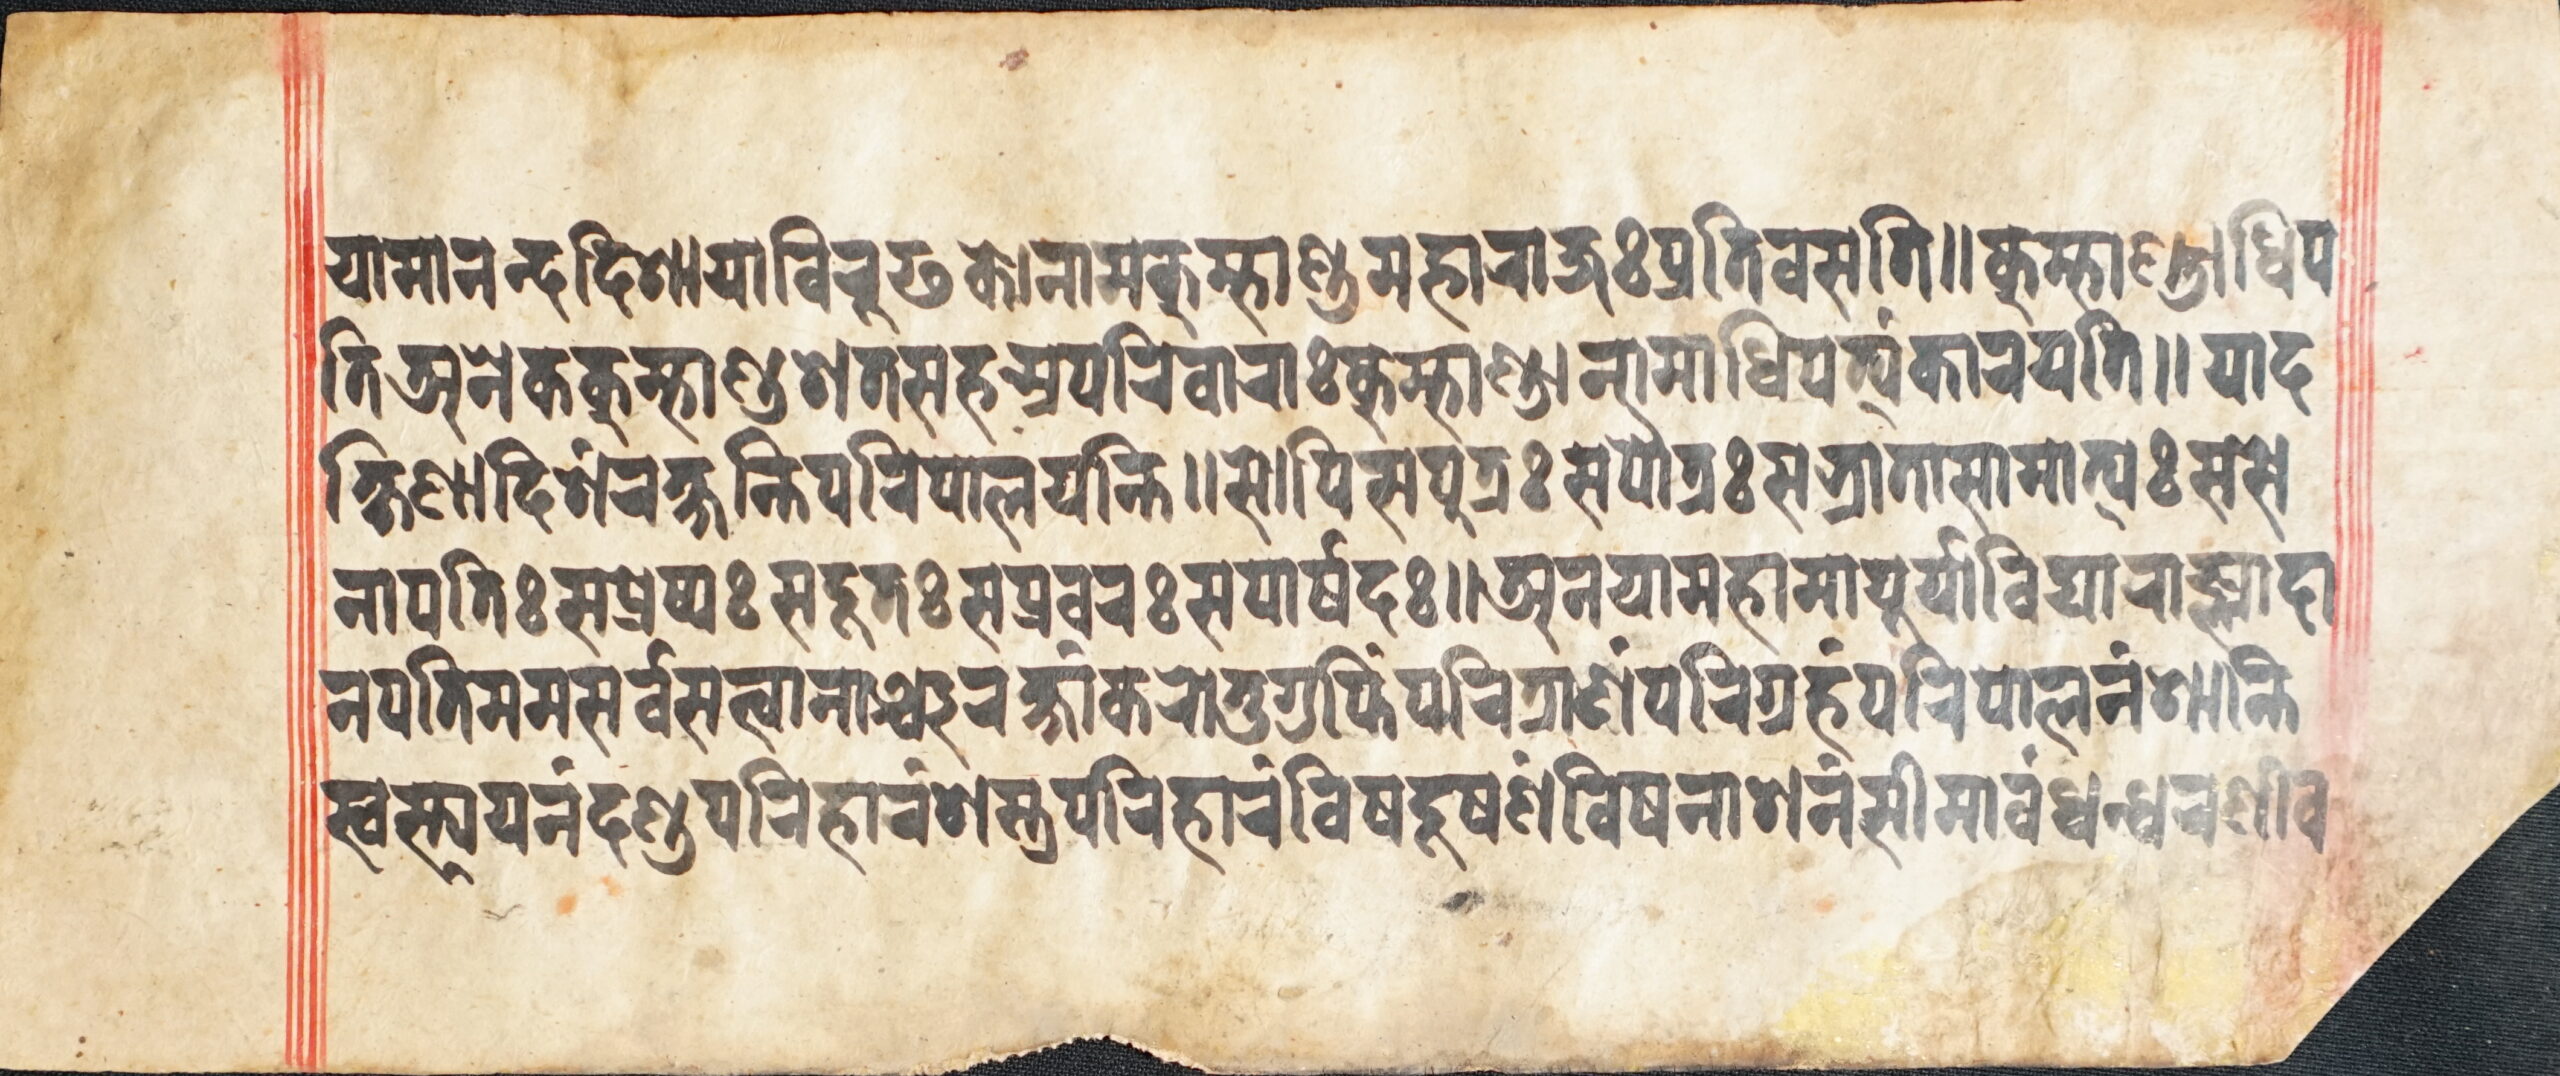 यामानन्ददिशायाविरुढकोनामकुम्भाण्डमहाराजःप्रतिवसति॥कुम्भाण्डाधिप
तिअनेककुम्भाण्डशतसहस्रपरिवाराःकुम्भाण्डानामाधिपत्यंकारयति॥याद
क्षिणादिशंरक्षन्तिपरिपालयन्ति॥सोपिसपुत्रःसपौत्रःसभ्रातासामात्यःससे
नापतिःसप्रेष्यःसदूतःसप्रवरःसपार्षदः॥अनयामहामायुर्याविद्याराज्ञादा
नपतिममसर्वसत्वानाञ्चरक्षांकरोतुगुप्तिंपरित्राणंपरिग्रहंपरिपालनंशान्ति
स्वस्त्ययनंदण्डपरिहारंशस्त्रपरिहारंविषदूषणंविषनाशनंसीमावंधन्धरणीव